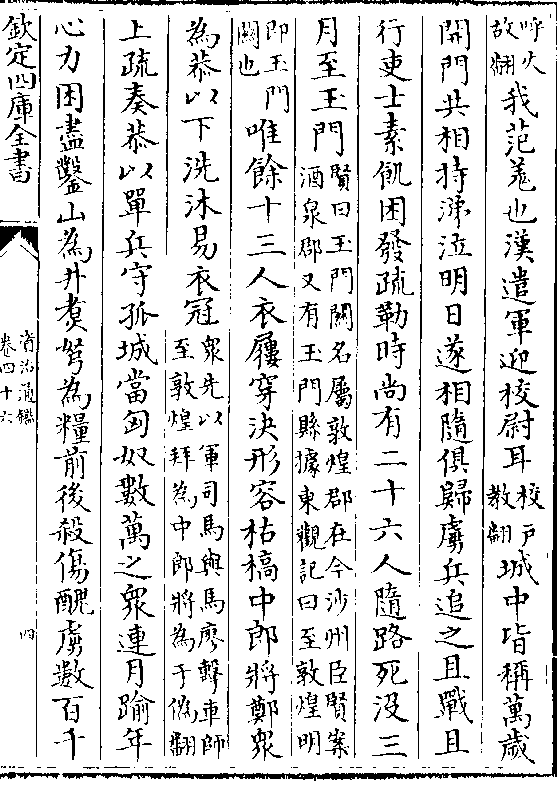 呼火
故翻
我范羌也漢遣軍迎校尉耳
校戶
教翻
城中皆稱萬歲
開門共相持涕泣明日遂相隨俱歸虜兵追之且戰且
行吏士素飢困發疏勒時尚有二十六人隨路死沒三
月至玉門
賢曰玉門關名屬敦煌郡在今沙州臣賢案
酒泉郡又有玉門縣據東觀記曰至敦煌明
即玉門
關也
唯餘十三人衣屨穿決形容枯槁中郎將鄭衆
為恭以下洗沐易衣冠
衆先以軍司馬與馬廖擊車師
至敦煌拜為中郎將為于偽翻
上疏奏恭以單兵守孤城當匈奴數萬之衆連月踰年
心力困盡鑿山為井煑弩為糧前後殺傷醜虜數百千
欽定四庫全書
資治通鑑
卷四十六
四